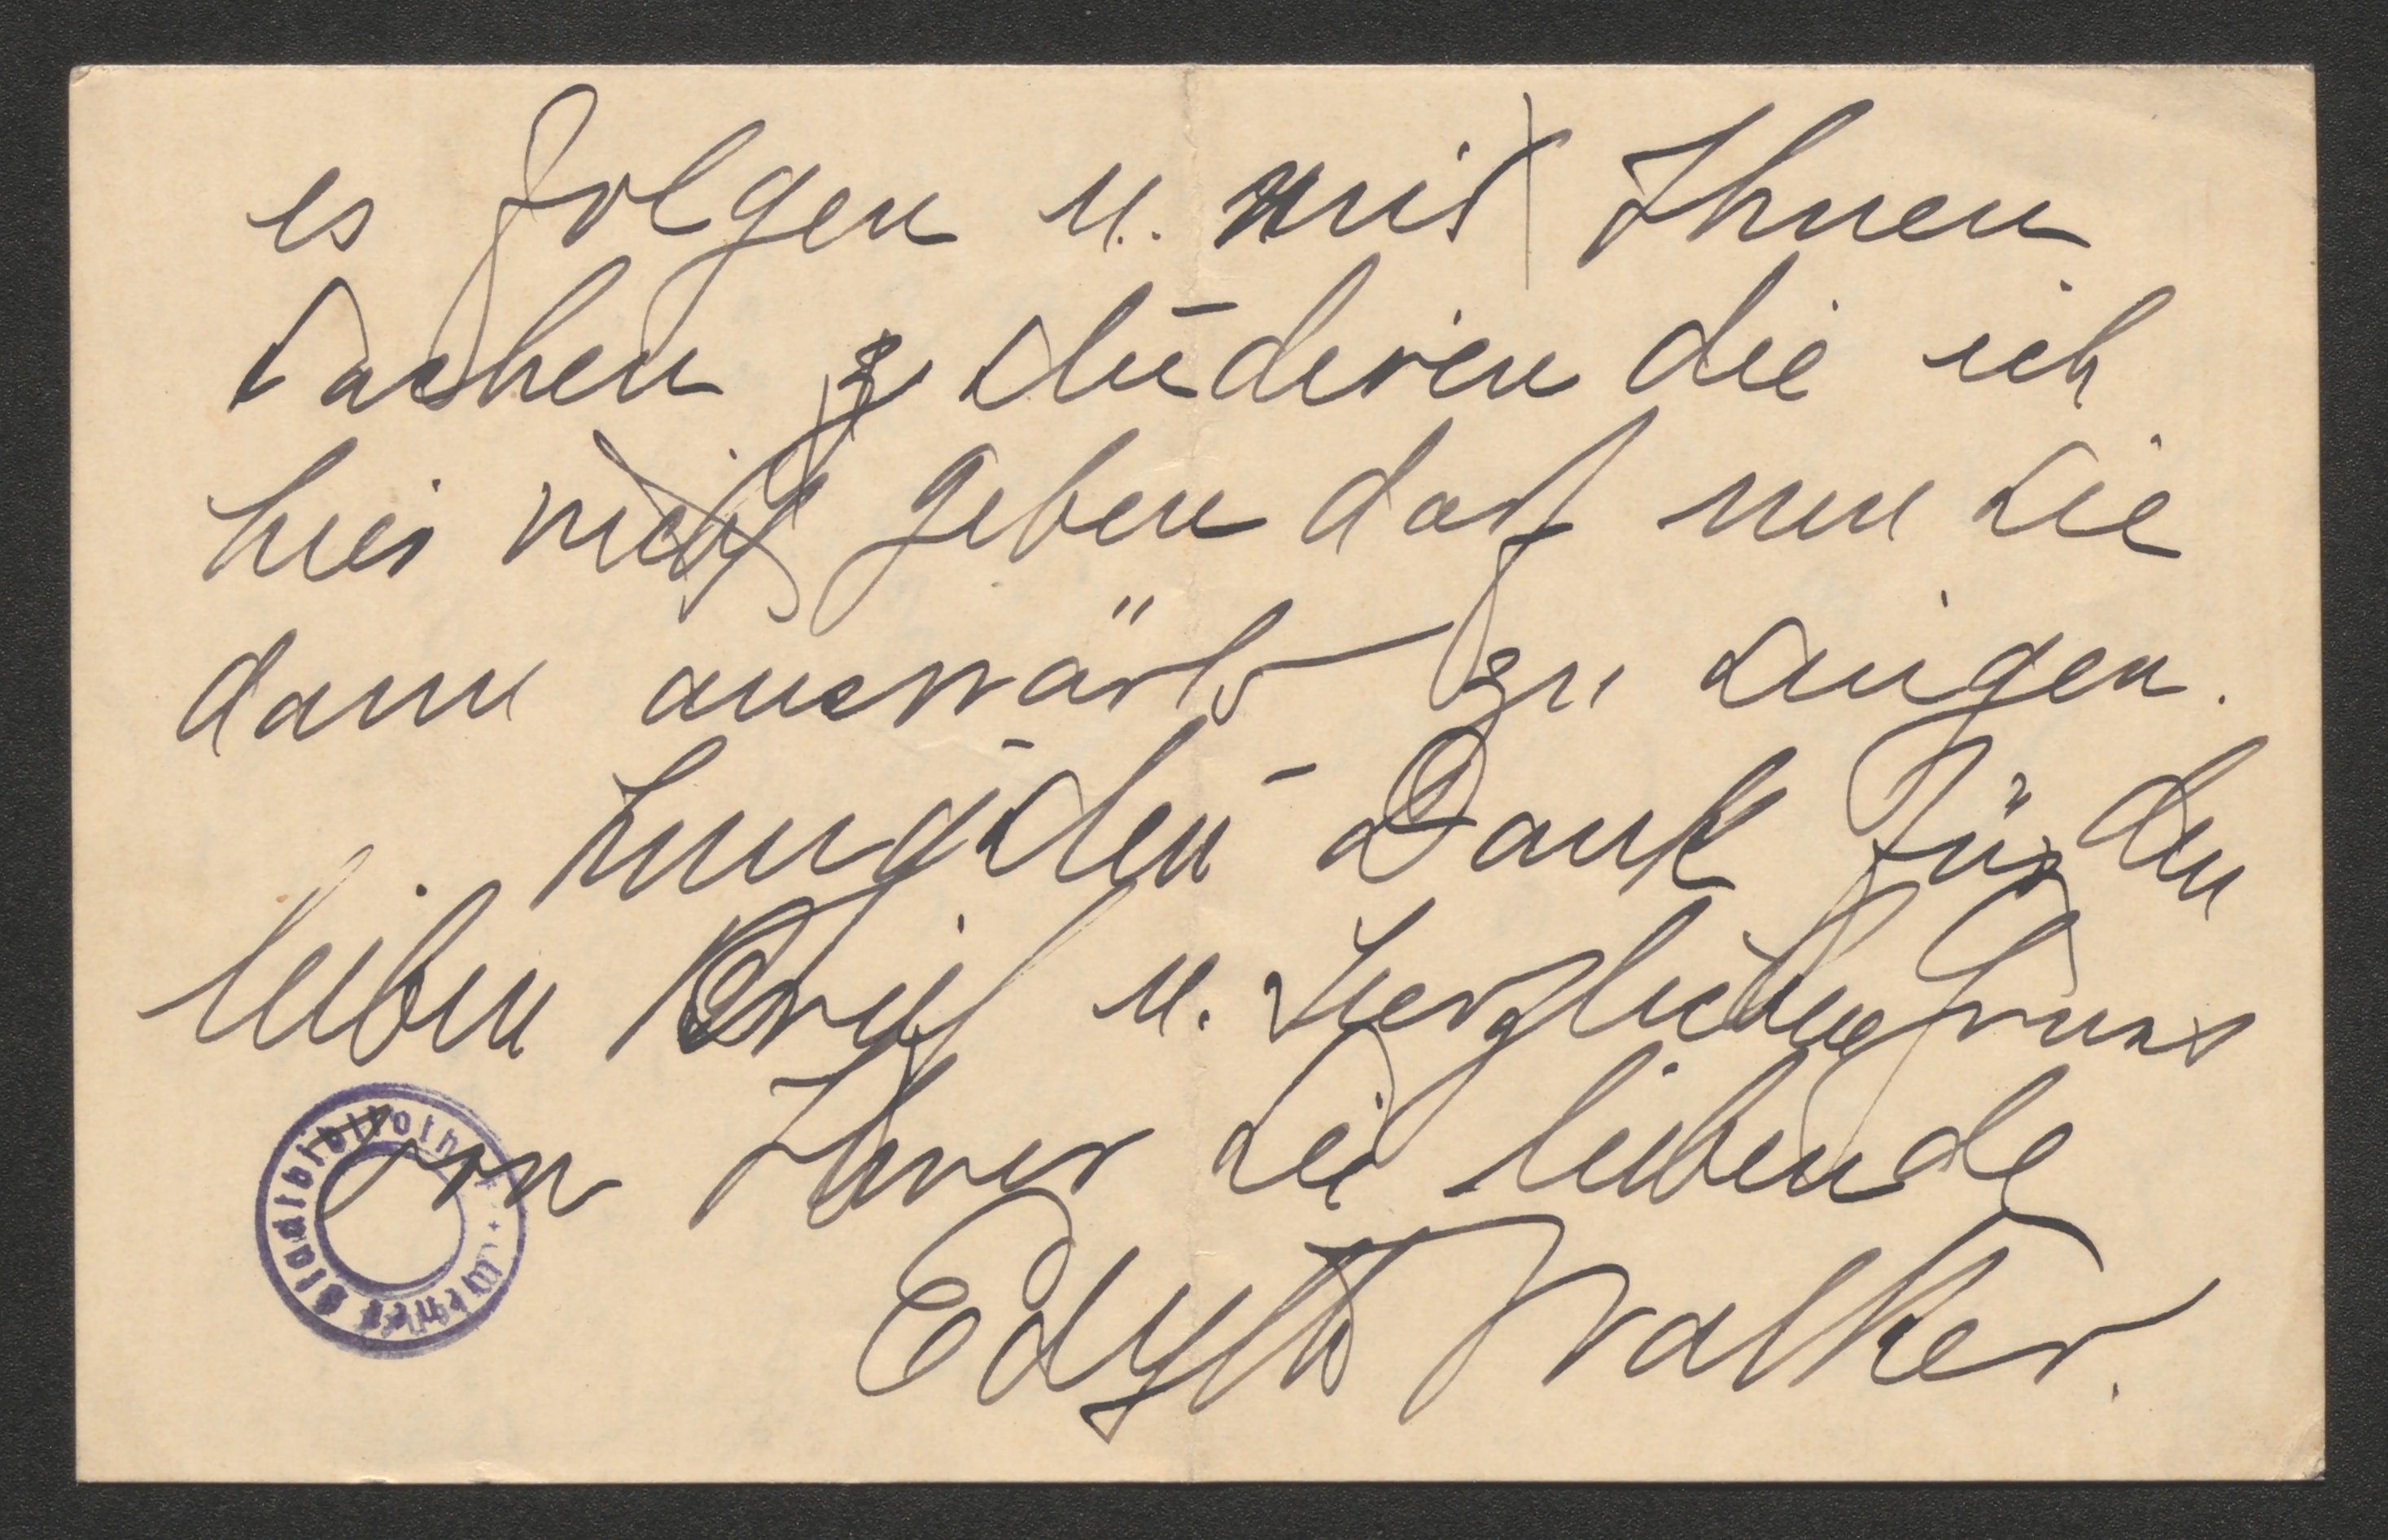 es folgen u. mit Ihnen
Sachen z studieren die ich
hier nicht geben darf um sie
dann auswärts zu singen.
Innigsten Dank für den
leiben Brief u. Herzlichen Gruss
von Ihrer Sie leibende
Edyth Walker.
Wiener Stadtbibliothek